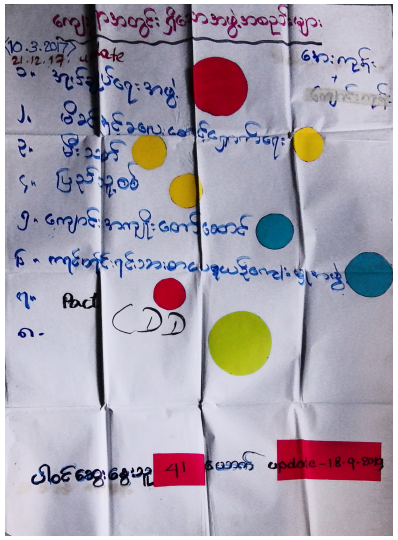 ကျေးရွာအတွင်း ရှိသော အဖွဲ့အစည်းများ
(10.3.2017)
21.12.17. update
အေးကုန်း
+
ကျောင်းကုန်း
၁။ အုပ်ချုပ်ရေးအဖွဲ့
၂။ မိခင်နှင့်ကလေးစောင့်ရှောက်ရေး
၃။ မီးသတ်
၄။ ပြည်သူ့စစ်
၅။ ကျောင်းအကျိုးတော်ဆောင်
၆။ ကရင်တိုင်းရင်းသားစာပေနှင့်ယဉ်ကျေးမှုအဖွဲ့
၇။ Pact
၈။ CDD
ပါဝင်ဆွေးနွေးသူ 41 ယောက် update-18-9-2019